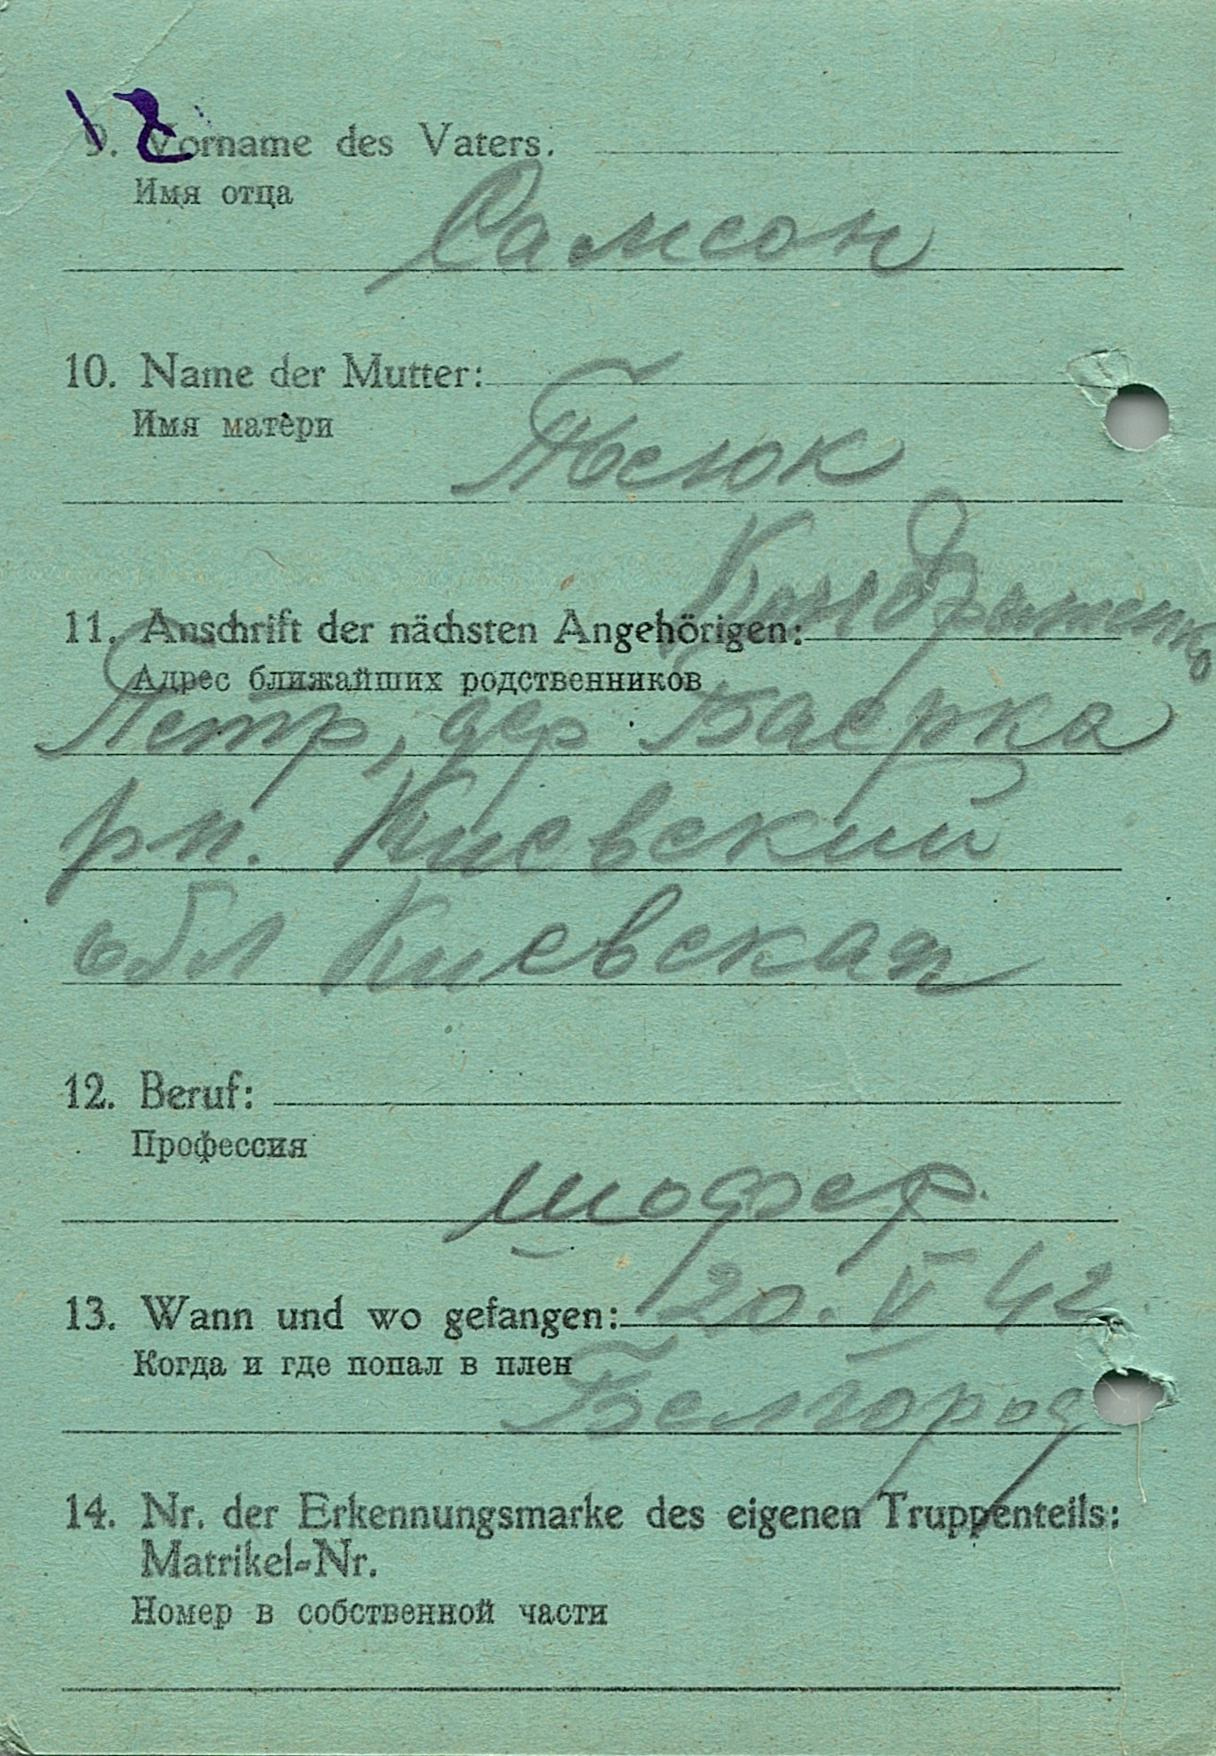 18
9. Vorname des Vaters:
Имя отца
Самсон
10. Name der Mutter:
Имя матери
Песюк
Кондратенко
11. Anschrift der nächsten Angehörigen:
Адрес ближайших родственников
Петр, дер Баерка
рн. Киевский
обл Киевская
12. Beruf:
Профессия
шофер.
13. Wann und wo gefangen: 20. V 42
Когда и где попал в плен
Белгород
14. Nr. der Erkennungsmarke des eigenen Truppenteils:
Matrikel-Nr.
Номер в собственной части